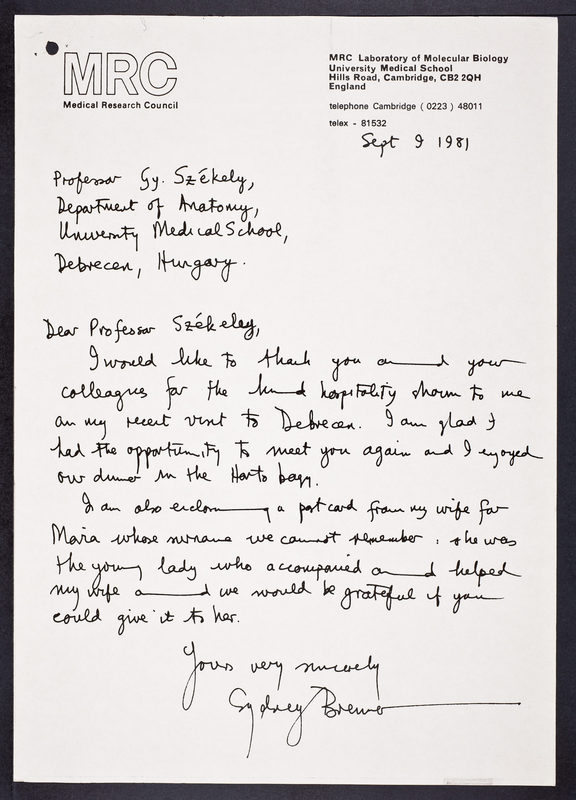 MRC
Medical Research Council
MRC Laboratory of Molecular Biology
University Medical School
Hills Road, Cambridge, CB2 2QH
England
telephone Cambridge ( 0223 ) 48011
telex - 81532
Sept 9 1981
Professor Gy. Székely,
Department of Anatomy,
University Medical School,
Debrecen, Hungary.
Dear Professor Székeley,
I would like to thank you and your
colleagues for the kind hospitality shown to me
on my recent visit to Debrecen. I am glad I
had the opportunity to meet you again and I enjoyed
our dinner in the Hortobagy.
I am also enclosing a postcard from my wife for
Maria whose surname we cannot remember : she was
the young lady who accompanied and helped
my wife and we would be grateful if you
could give it to her.
Yours very sincerely
Sydney Brenner